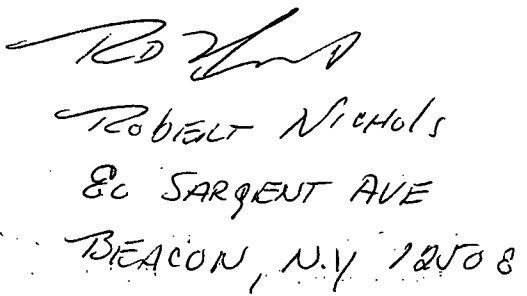 Robert Nichols
80 SARGENT AVE
BEACON, N.Y 12508